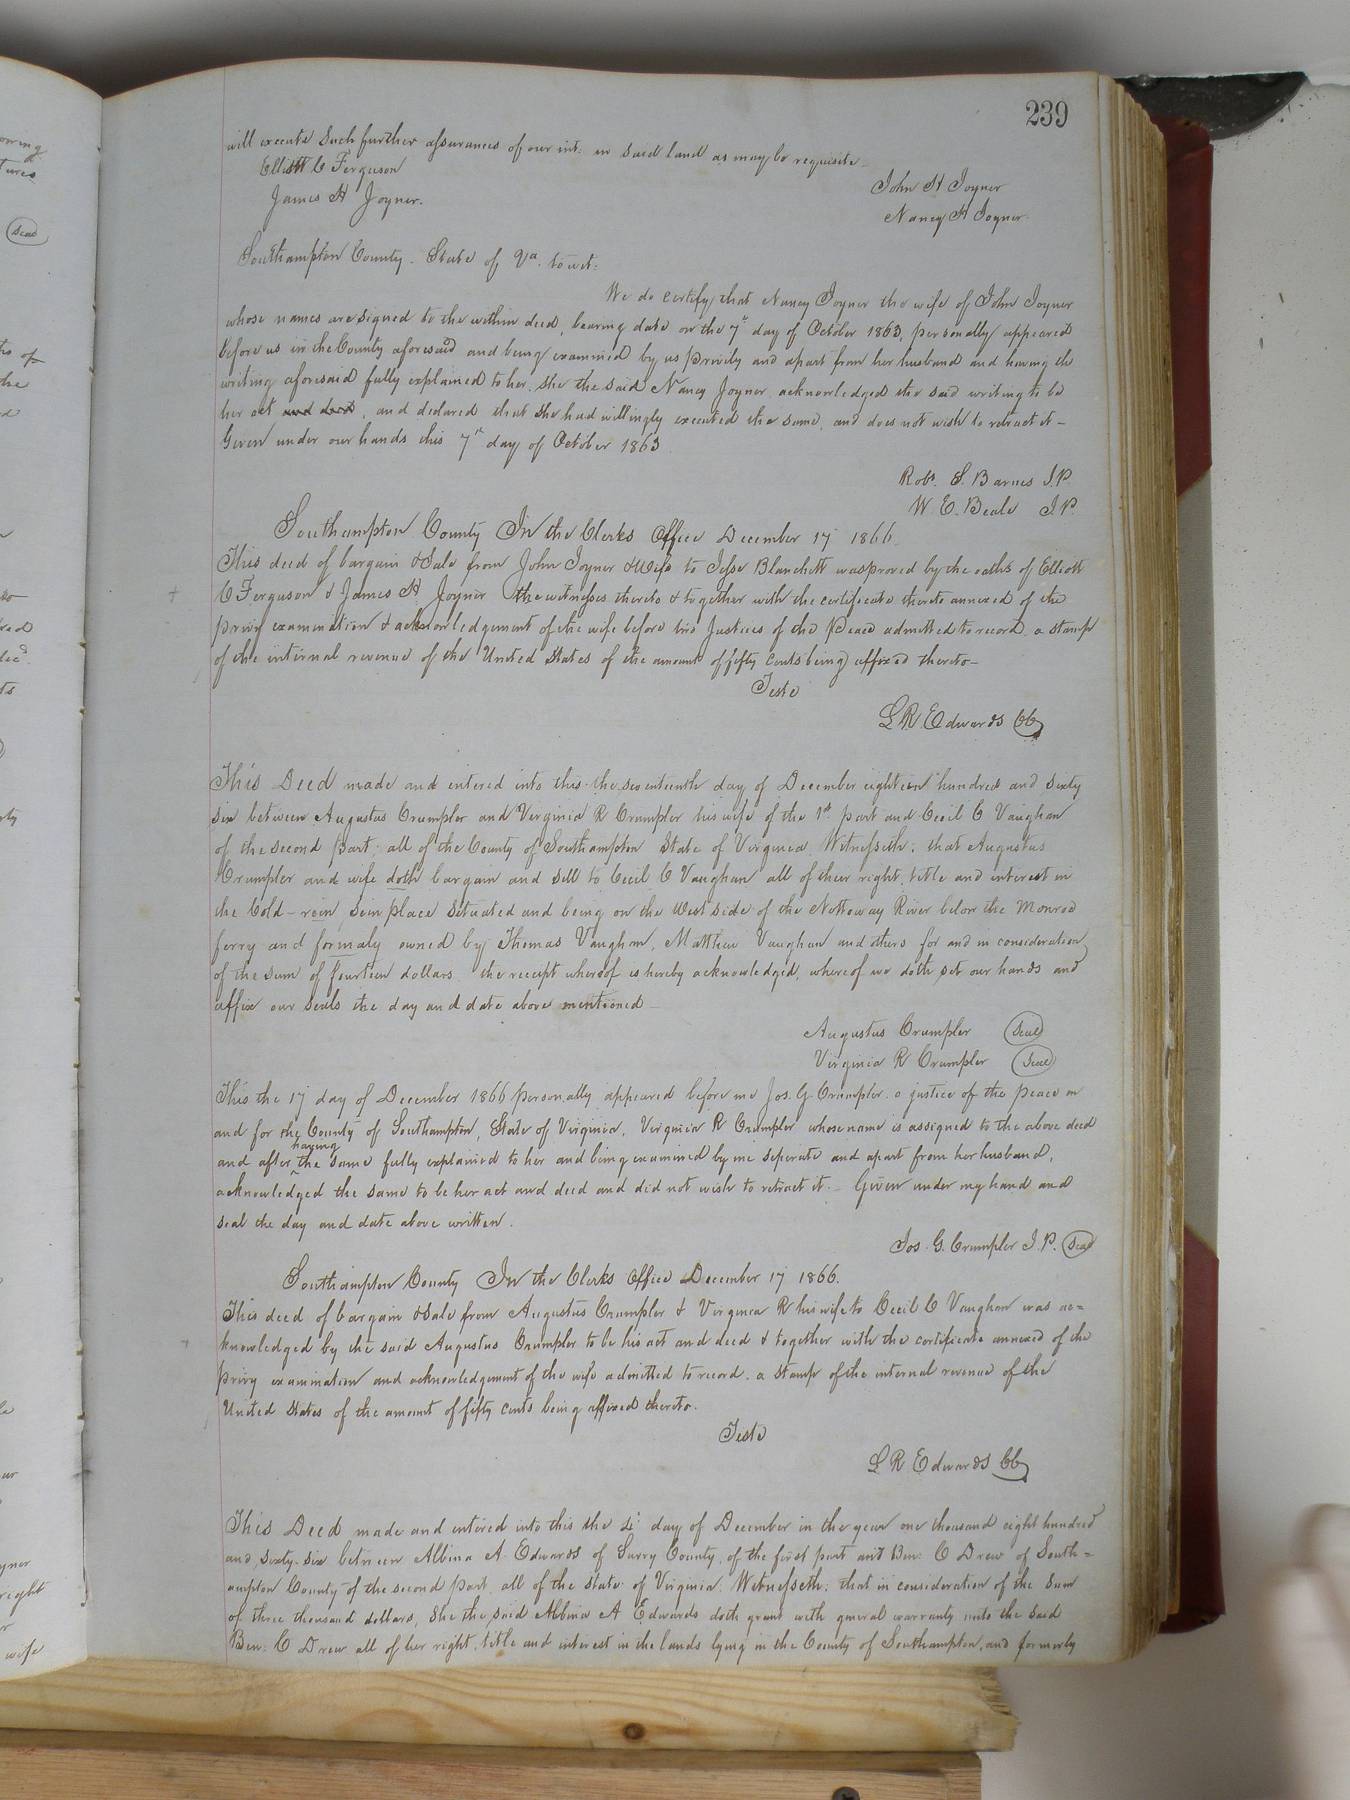 239
will execute such further assurances of our int: in said land as may be requisite
Elliott C Ferguson
James H Joyner.
John H Joyner
Nancy H Joyner
Southampton County. State of Va. towit:
We do certify that Nancy Joyner the wife of John Joyner
whose names are signed to the within deed, bearing date on the 7th day of October 1863, personally appeared
before us in the County aforesaid and being examined by us privily and apart from her husband and having the
writing aforesaid fully explained to her, she the said Nancy Joyner acknowledged the said writing to be
her act and deed, and declared that she had willingly executed the same, and does not wish to retract it-
Given under our hands this 7th day of October 1863
Robt. S. Barnes J.P.
W. E. Beale J.P.
Southampton County In the Clerks Office December 17 1866.
This deed of bargain & Sale from John Joyner & Wife to Jesse Blanchett was proved by the oaths of Elliott
C Ferguson & James H Joyner the witnesses thereto & together with the certificate thereto annexed of the
privy examination & acknowledgement of the wife before two Justices of the Peace admitted to record, a stamp
of the internal revenue of the United States of the amount of fifty cents being affixed thereto-
Teste
L R Edwards CC
This Deed made and entered into this the seventeenth day of December eighteen hundred and sixty
six between Augustus Crumpler and Virginia R Crumpler his wife of the 1st part and Cecil C Vaughan
of the second part, all of the County of Southampton State of Virginia Witnesseth: that Augustus
Crumpler and wife doth bargain and sell to Cecil C Vaughan all of their right, title and interest in
the Cold-rein Sein place Situated and being on the West side of the Nottoway River below the Monroe
ferry and formaly owned by Thomas Vaughan, Matthew Vaughan and others for and in consideration
of the sum of fourteen dollars the receipt whereof is hereby acknowledged, whereof we doth set our hands and
affix our seals the day and date above mentioned-
Augustus Crumpler Seal
Virginia R Crumpler Seal
This the 17 day of December 1866 personally appeared before me Jos. G. Crumpler a justice of the peace in
and for the County of Southampton, State of Virginia, Virginia R Crumpler whose name is assigned to the above deed
having
and after the same fully explained to her and being examined by me seperate and apart from her husband,
acknowledged the same to be her act and deed and did not wish to retract it.- Given under my hand and
seal the day and date above written.
Jos. G. Crumpler J.P. Seal
Southampton County In the Clerks Office December 17 1866.
This deed of bargain & Sale from Augustus Crumpler & Virginia R his wife to Cecil C Vaughan was ac=
knowledged by the said Augustus Crumpler to be his act and deed & together with the certificate annexed of the
privy examination and acknowledgement of the wife admitted to record. a stamp of the internal revenue of the
United States of the amount of fifty cents being affixed thereto.
Teste
L R Edwards CC
This Deed made and entered into this the 4th day of December in the year one thousand eight hundred
and sixty-six between Albina A. Edwards of Surry County, of the first part and Ben: C Drew of South=
ampton County of the second part, all of the state of Virginia. Witnesseth: that in consideration of the sum
of three thousand dollars, She the said Albina A Edwards doth grant with general warranty unto the said
Ben: C Drew all of her right, title and interest in the lands lying in the County of Southampton, and formerly